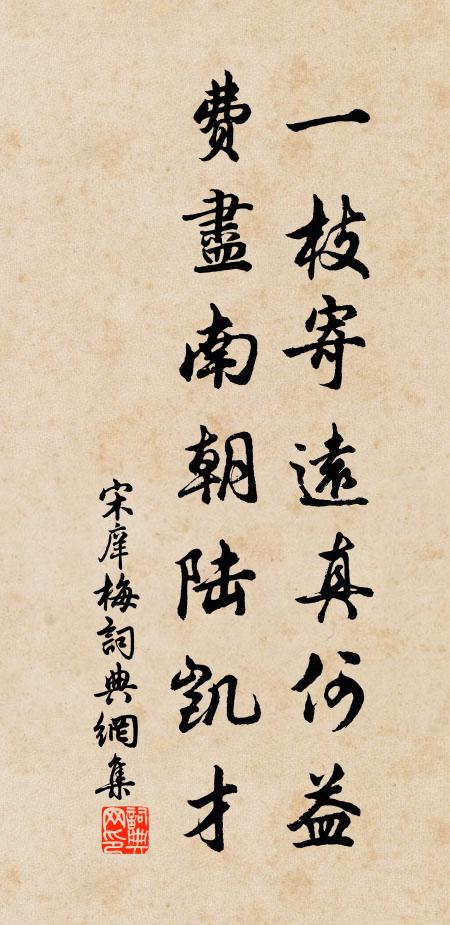 一枝寄遠真何益
費盡南朝陸凱才
宋庠梅詞典網集
詞典網印